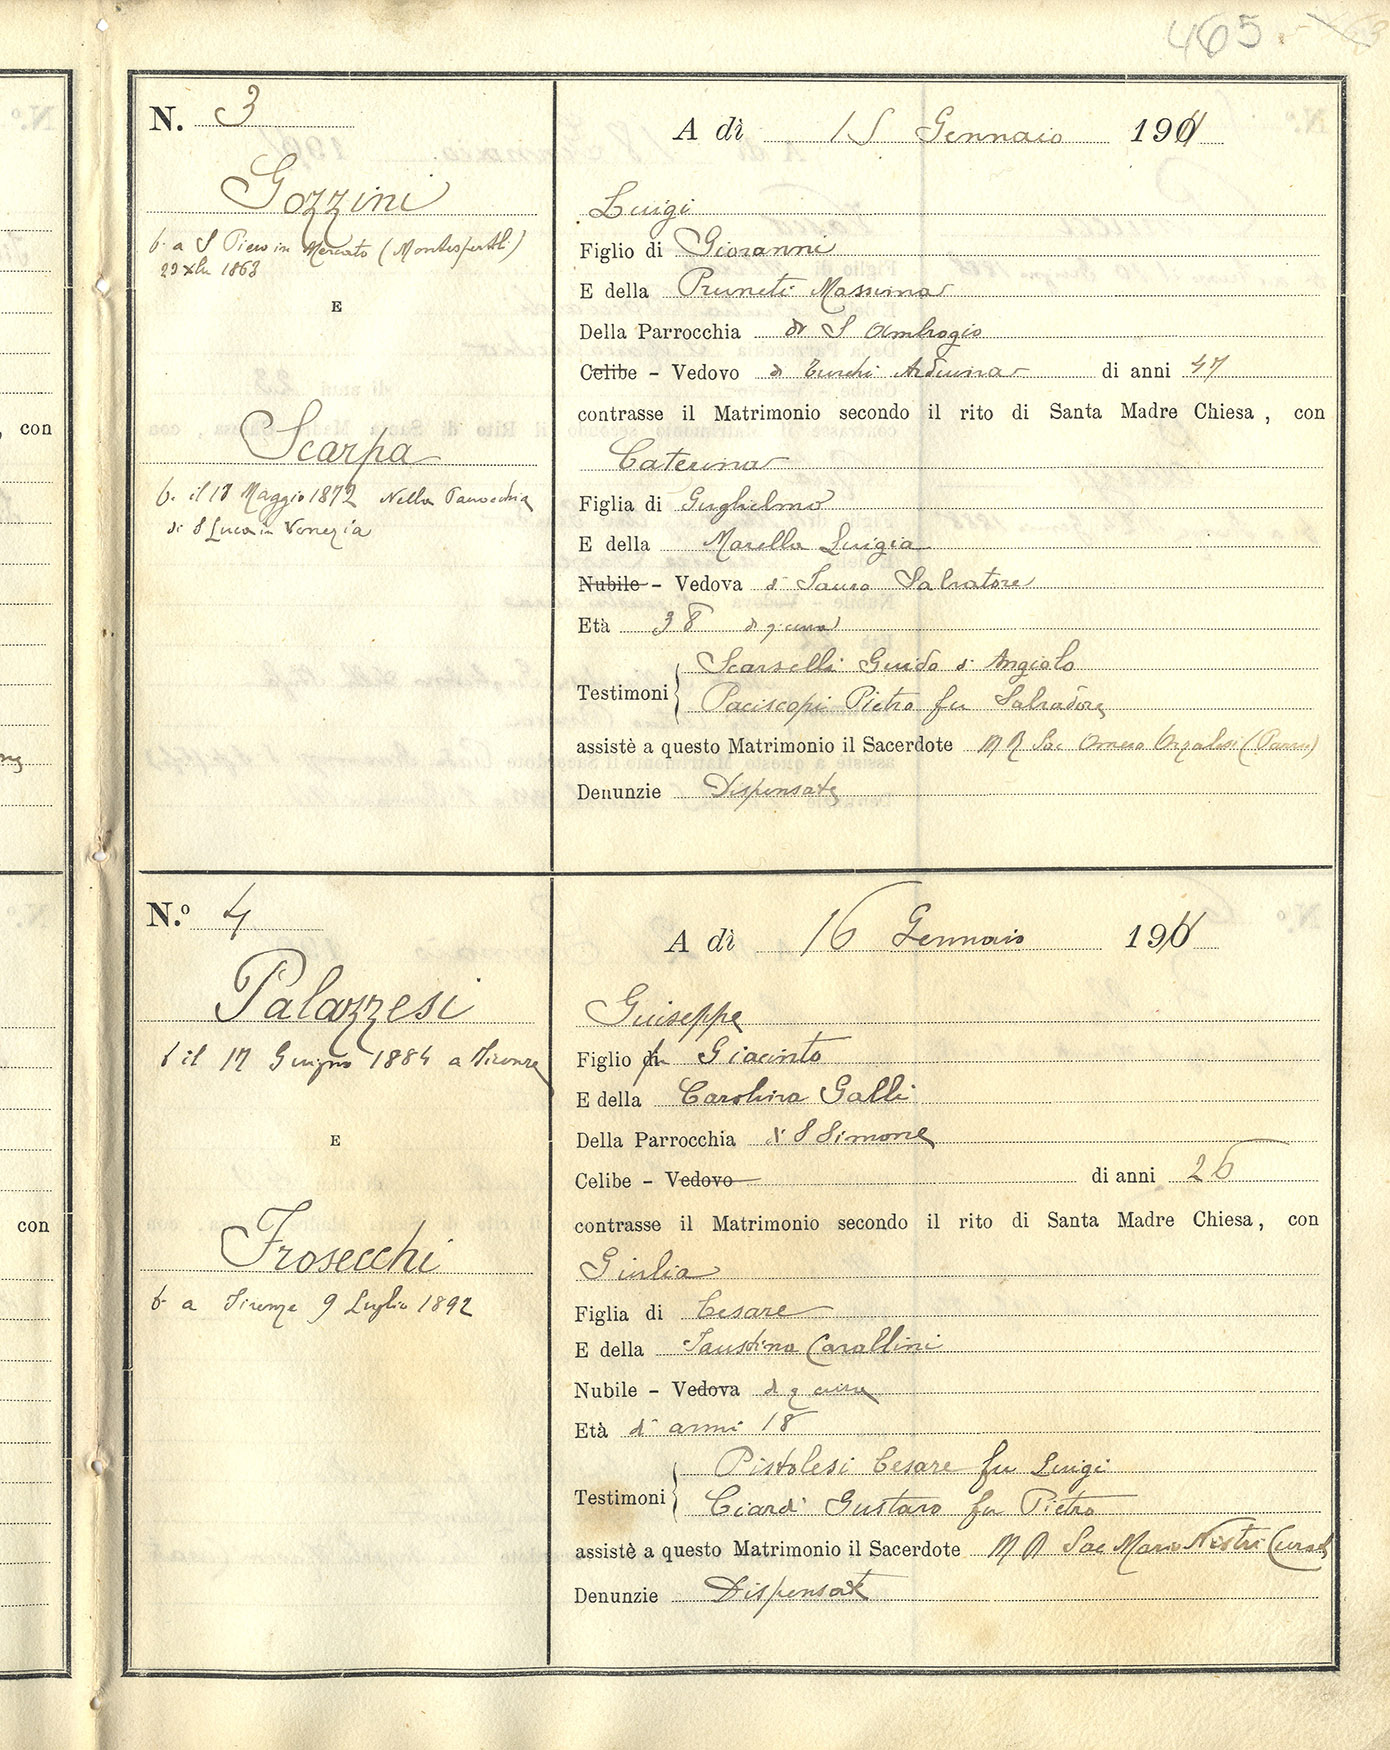 465
N. 3
Gozzini
b. a S Piero in Mercato (Montespertoli)
29 Xbre 1863
E
Scarpa
b. il 17 Maggio 1872 Nella Parrocchia
di S Luca in Venezia
A dì 15 Gennaio 1911
Luigi
Figlio di Giovanni
E della Pruneti Massima
Della Parrocchia di S Ambrogio
Celibe - Vedovo di Turchi Arduina di anni 47
contrasse il Matrimonio secondo il rito di Santa Madre Chiesa, con
Caterina
Figlia di Guglielmo
E della Marella Luigia
Nubile - Vedova di Sauro Salvatore
Età 38 di q. cura
Testimoni Scarselli Guido di Angiolo
Paciscopi Pietro fu Salvadore
assistè a questo Matrimonio il Sacerdote M R Sac Omero
Denunzie Dispensate
N.º 4
Palazzesi
b il 17 Giugno 1884 a Firenze
E
Frosecchi
b. a Firenze 9 Luglio 1892
A dì 16 Gennaio 1911
Giuseppe
Figlio fu Giacinto
E della Carolina Galli
Della Parrocchia di S Simone
Celibe - Vedovo di anni 26
contrasse il Matrimonio secondo il rito di Santa Madre Chiesa, con
Giulia
Figlia di Cesare
E della Faustina Cavallini
Nubile - Vedova di q cura
Età di anni 18
Testimoni Pistolesi Cesare fu Luigi
Ciardi Gustavo fu Pietro
assistè a questo Matrimonio il Sacerdote M R Sac Mario Nistri Curato
Denunzie Dispensate
con
con